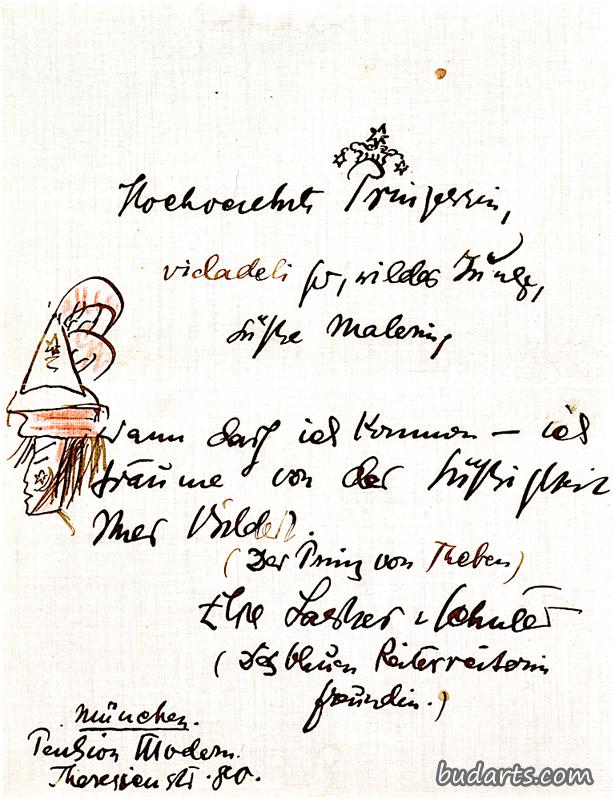 Hochverehrte Prinzessin,
wildes Junge,
süße Malerin,
Wann darf ich kommen – ich
träume von der Süßigkeit
Ihrer Bilder.
(Der Prinz von Theben)
Else Lasker-Schüler
(Des blauen Reiterreiterin
freundin.)
München.
Pension Modern.
Theresienstr. 80.
budarts.com